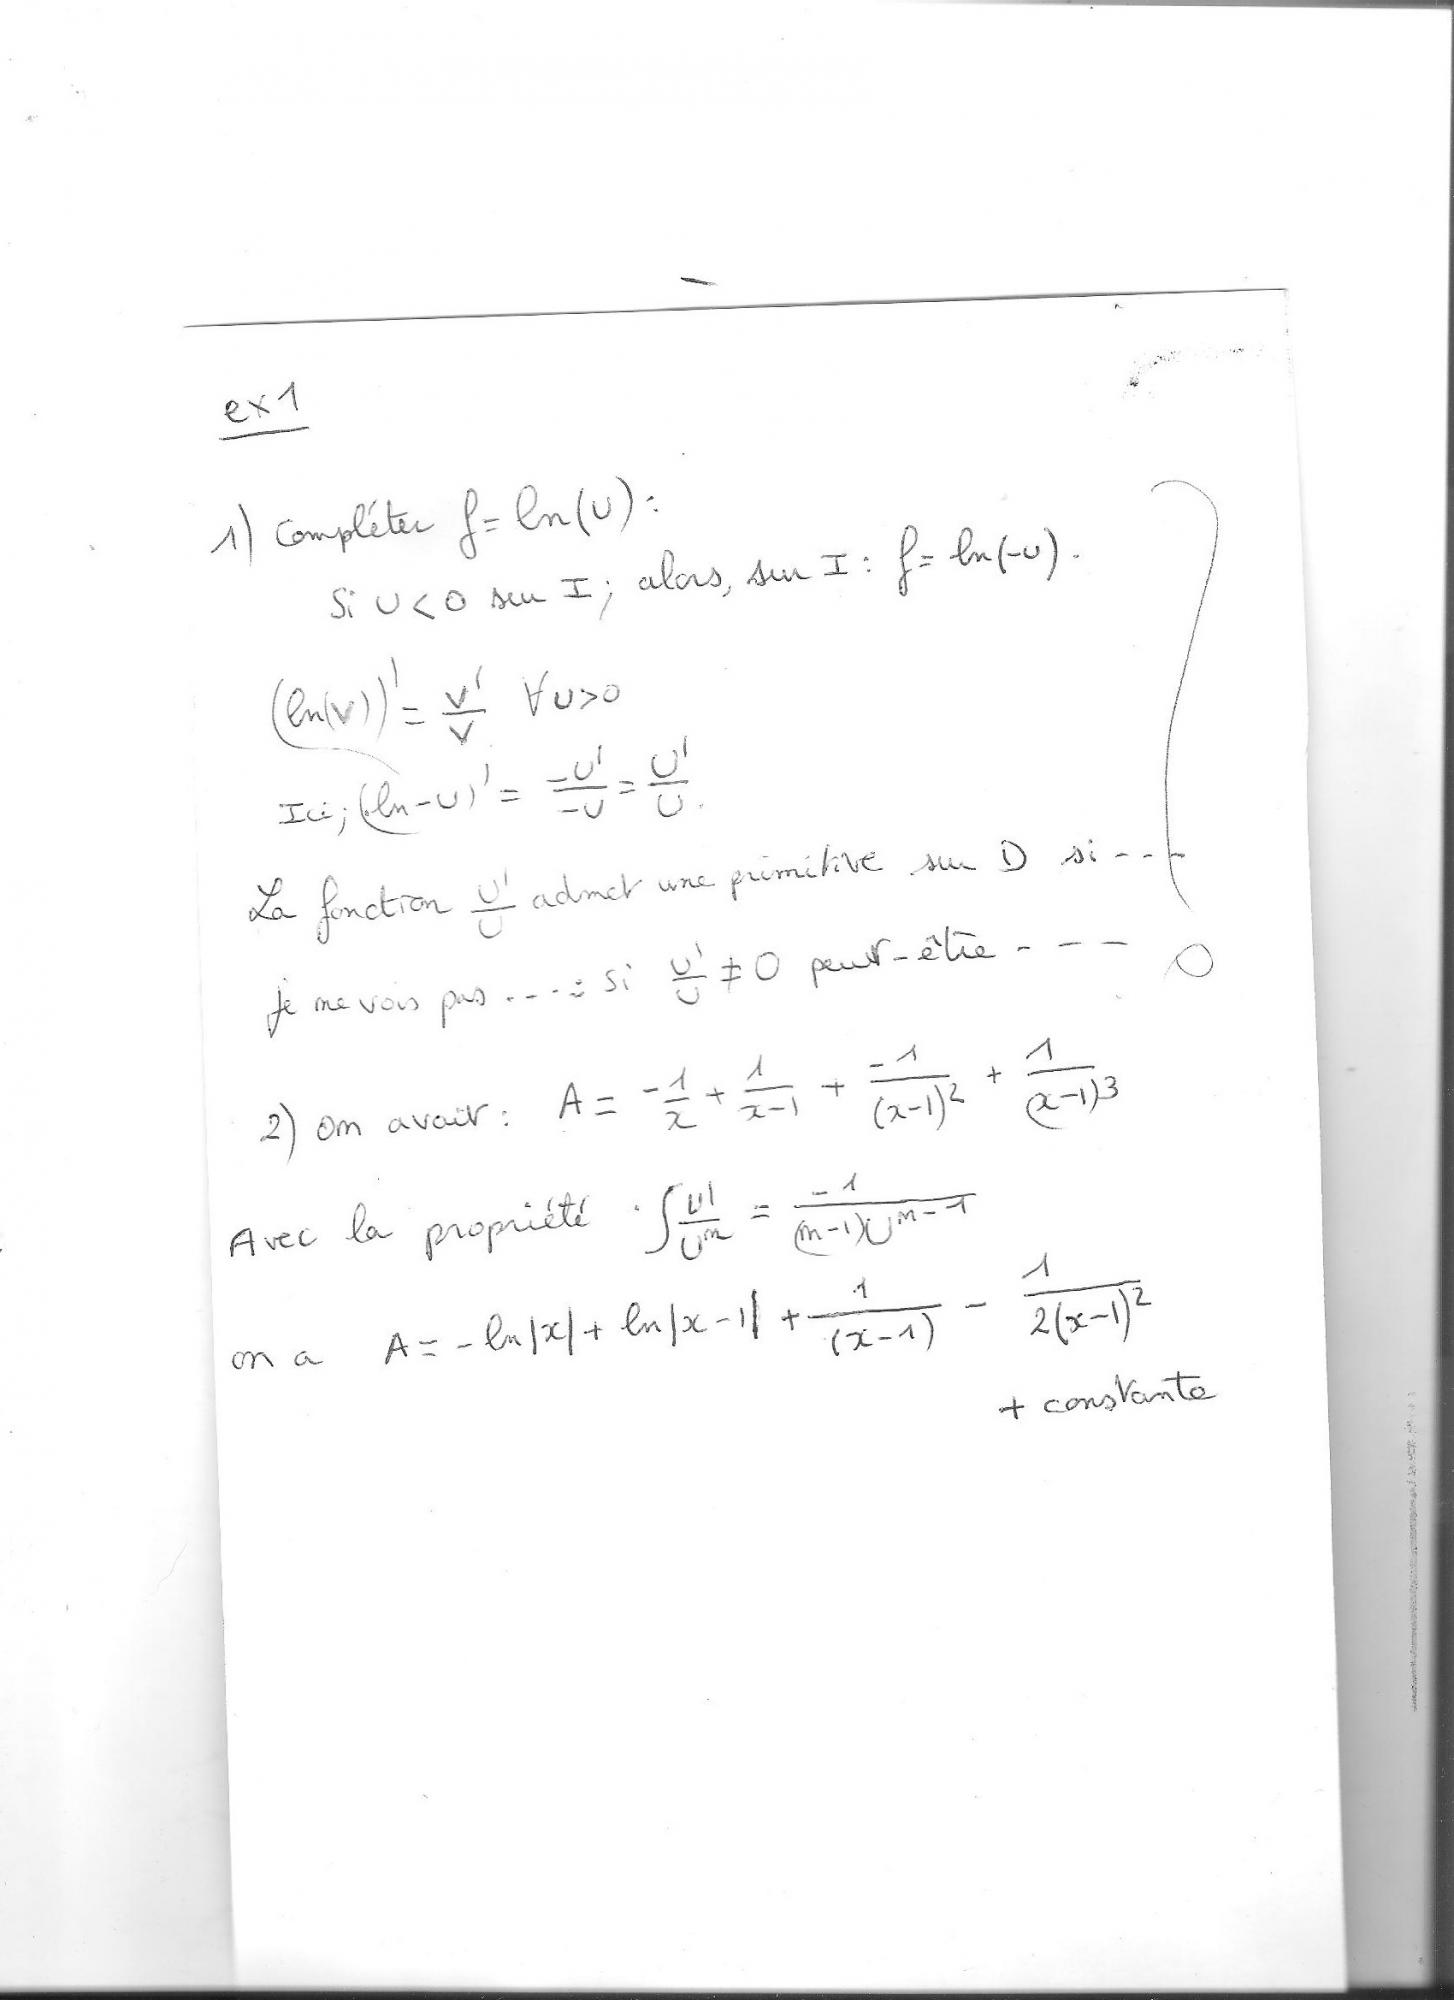 ex1
1) Compléter f = ln(U) :
Si U < 0 sur I ; alors, sur I : f = ln(-U).
(ln(V))' = V'/V ∀U>0
Ici ; (ln-U)' = -U'/-U = U'/U.
La fonction U'/U admet une primitive sur D si ---
je ne vois pas ---- : si U'/U ≠ 0 peut-être - - -
2) on avait : A = -1/x + 1/(x-1) + -1/(x-1)² + 1/(x-1)³
Avec la propriété . ∫ U'/Uⁿ = -1/((n-1)Uⁿ⁻¹)
on a A = -ln|x| + ln|x-1| + 1/(x-1) - 1/(2(x-1)²)
+ constante